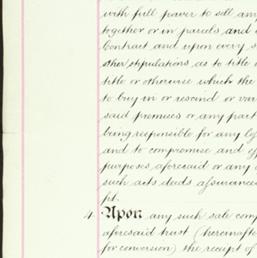 with full power to sell any
together or in parcels and
Contract and upon every s
other stipulations as to title
title or otherwise which the
to buy in or rescind or var
said premises or any part
being responsible for any los
and to compromise and eff
purposes aforesaid or any
such acts deeds assurances
pt.
4. Upon any such sale comp
aforesaid trust (hereinafte
for conversion) the receipt of